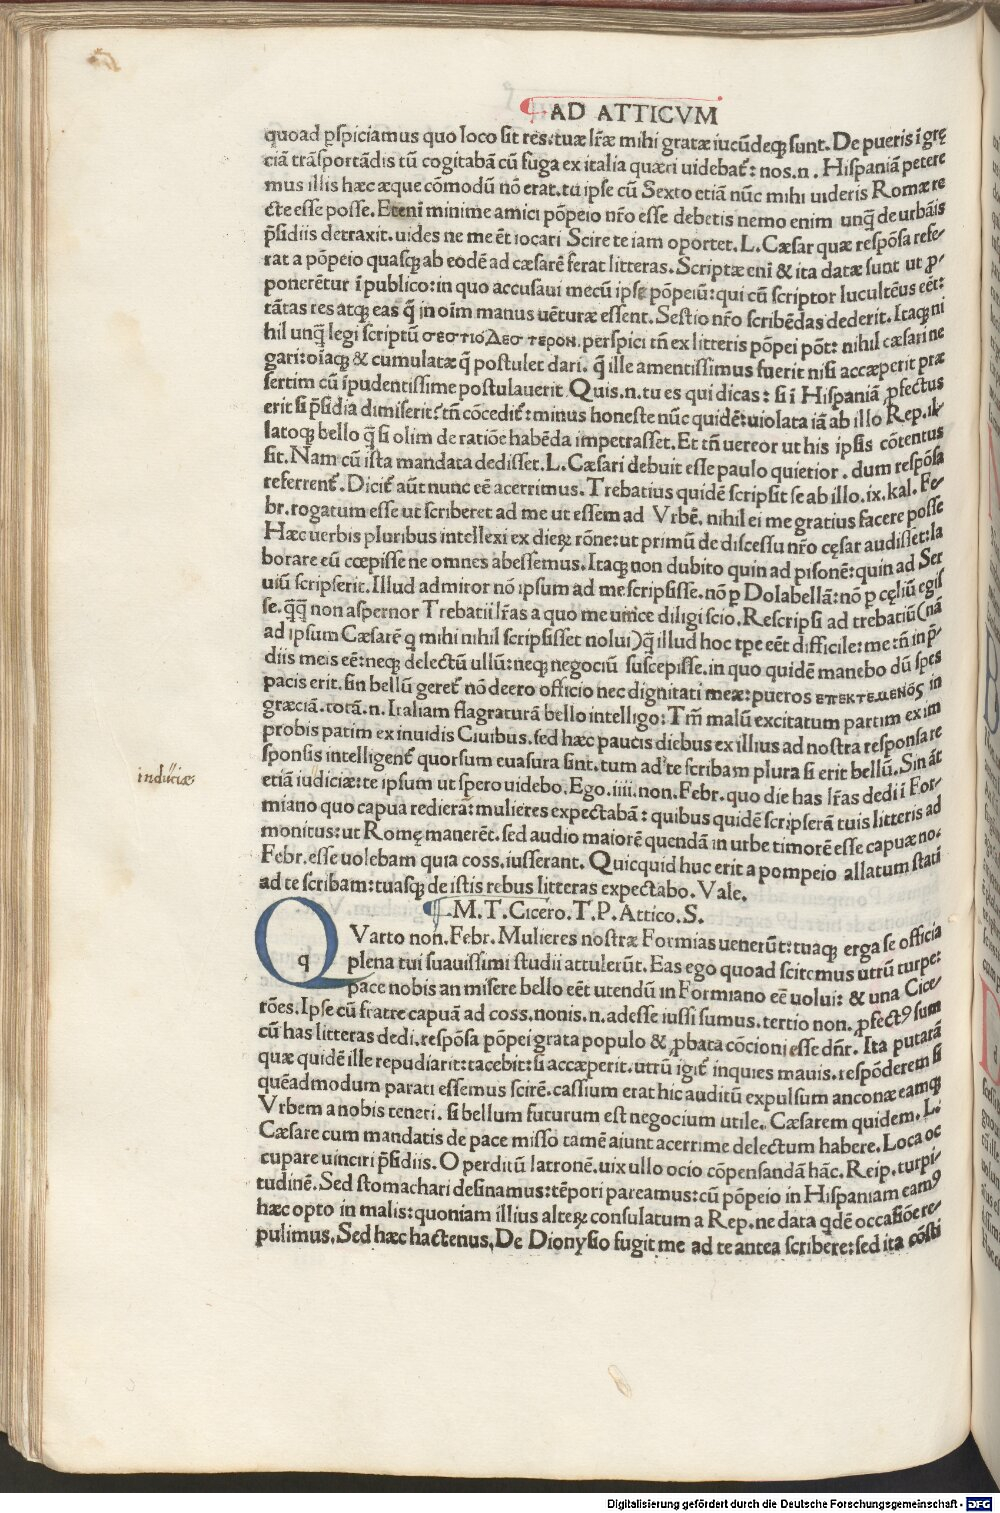 AD ATTICVM
quoad ꝑspiciamus quo loco sit res: tuæ lr̃æ mihi gratæ iucũdeqꝫ sunt. De pueris ĩ grę
ciã trãsportãdis tũ cogitabã cũ fuga ex italia quæri uidebat᷑: nos.n. Hispaniã petere
mus illis hæc æque cõmodũ nõ erat. tu ipse cũ Sexto etiã nũc mihi uideris Romæ re
cte esse posse. Etenĩ minime amici põpeio nr̃o esse debetis nemo enim unq̃ de urbãis
p̃sidiis detraxit. uides ne me ẽt iocari Scire te iam oportet. L. Cæsar quæ respõsa refe-
rat a põpeio quasqꝫ ab eodẽ ad cæsarẽ ferat litteras. Scriptæ enĩ & ita datæ sunt ut ꝓ-
ponerẽtur ĩ publico: in quo accusaui mecũ ipse põpeiũ: qui cũ scriptor luculẽus eẽt:
tãtas res atqꝫ eas q̃ ĩn oĩm manus uẽturæ essent. Sestio nr̃o scribẽdas dederit. Itaqꝫ ni
hil unq̃ legi scriptũ σεστιοΔεστερον. perspici tñ ex litteris põpei põt: nihil cæsari ne
gari: oĩaqꝫ & cumulatæ q̃ postulet dari. q̃ ille amentissimus fuerit nisi accæperit præ
sertim cũ ĩpudentissime postulauerit Quis.n. tu es qui dicas: si ĩ Hispaniã ꝓfectus
erit si p̃sidia dimiserit? tñ cõcedit᷑: minus honeste nũc quidẽ: uiolata iã ab illo Rep. il-
latoqꝫ bello q̃ si olim de ratiõe habẽda impetrasset. Et tñ uereor ut his ipsis cõtentus
sit. Nam cũ ista mandata dedisset. L. Cæsari debuit esse paulo quietior. dum respõsa
referrent᷑. Dicit᷑ aũt nunc eẽ acerrimus. Trebatius quidẽ scripsit se ab illo. ix. kal. Fe-
br. rogatum esse ut scriberet ad me ut essem ad Vrbẽ. nihil ei me gratius facere posse
Hæc uerbis pluribus intellexi ex dieꝝ rõne: ut primũ de discessu nr̃o cęsar audisset: la
borare eũ cœpisse ne omnes abessemus. Itaqꝫ non dubito quin ad pisonẽ: quin ad Ser
uiũ scripserit. Illud admiror nõ ipsum ad me scripsisse. nõ ꝑ Dolabellã: nõ ꝑ cęliũ egis
se. q̃q̃ non aspernor Trebatii lr̃as a quo me unice diligi scio. Rescripsi ad trebatiũ (nã
ad ipsum Cæsarẽ q mihi nihil scripsisset nolui) q̃ illud hoc tꝑe eẽt difficile: me: tñ in p̃-
diis meis eẽ: neqꝫ delectũ ullũ: neqꝫ negociũ suscepisse. in quo quidẽ manebo dũ spes
pacis erit. sin bellũ geret᷑ nõ deero officio nec dignitati meæ: pueros επεκτεμενος in
græciã. totã.n. Italiam flagraturã bello intelligo: Tm̃ malũ excitatum partim ex im
probis patim ex inuidis Ciuibus. sed hæc paucis diebus ex illius ad nostra responsa re
sponsis intelligent᷑ quorsum euasura sint. tum ad te scribam plura si erit bellũ. Sin ãt
etiã iudiciæ: te ipsum ut spero uidebo. Ego. iiii. non. Febr. quo die has lr̃as dedi ĩ For-
induciæ
miano quo capua redierã: mulieres expectabã: quibus quidẽ scripserã tuis litteris ad
monitus: ut Romę manerẽt. sed audio maiorẽ quendã in urbe timorẽ esse capuæ no.
Febr. esse uolebam quia coss. iusserant. Quicquid huc erit a pompeio allatum stati
ad te scribam: tuasqꝫ de istis rebus litteras expectabo. Vale.
M. T. Cicero. T. P. Attico. S.
Q q Varto non. Febr. Mulieres nostræ Formias uenerũt: tuaqꝫ erga se officia
plena tui suauissimi studii attulerũt. Eas ego quoad sciremus utrũ turpe:
pace nobis an misere bello eẽt utendũ in Formiano eẽ uolui: & una Cice-
rões. Ipse cũ fratre capuã ad coss. nonis.n. adesse iussi sumus. tertio non. ꝓfectꝰ sum
cũ has litteras dedi. respõsa põpei grata populo & ꝓbata cõcioni esse dñr. Ita putarã
quæ quidẽ ille repudiarit: tacebit: si accæperit. utrũ igit᷑ inquies mauis. respõderem si
quẽadmodum parati essemus scirẽ. cassium erat hic auditũ expulsum anconæ eamqꝫ
Vrbem a nobis teneri. si bellum futurum est negocium utile. Cæsarem quidem. L.
Cæsare cum mandatis de pace misso tamẽ aiunt acerrime delectum habere. Loca oc
cupare uinciri p̃sidiis. O perditũ latronẽ. uix ullo ocio cõpensandã hãc. Reip. turpi-
tudinẽ. Sed stomachari desinamus: tẽpori pareamus: cũ põpeio in Hispaniam eamꝰ
hæc opto in malis: quoniam illius alteꝝ consulatum a Rep. ne data qdẽ occasiõe re-
pulimus. Sed hæc hactenus. De Dionysio fugit me ad te antea scribere: sed ita cõsti
Digitalisierung gefördert durch die Deutsche Forschungsgemeinschaft - DFG